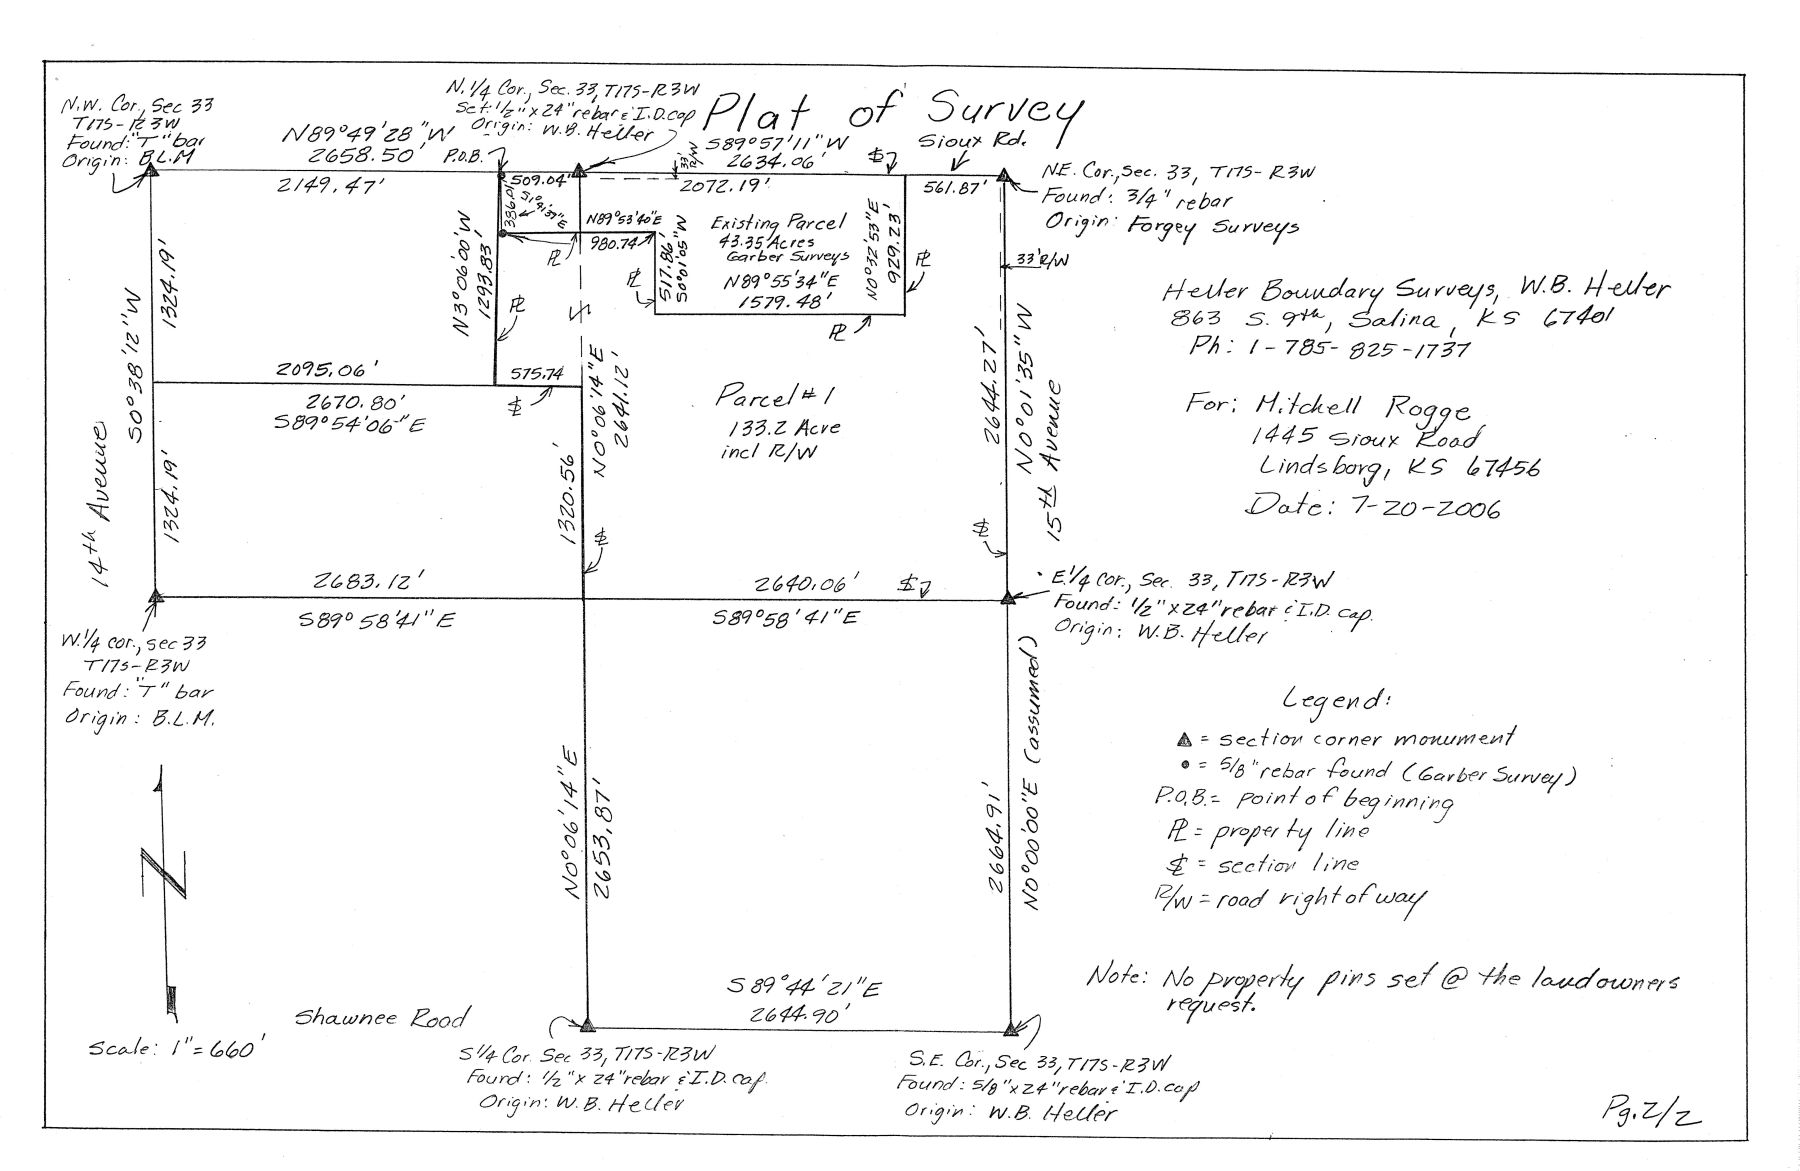 Plat of Survey
N.W. Cor., Sec 33
T17S-R3W
Found: "T" bar
Origin: B.L.M
N. 1/4 Cor., Sec. 33, T17S-R3W
Set: 1/2" x 24" rebar & I.D. cap
Origin: W.B. Heller
N89°49'28"W
2658.50'
P.O.B.
2149.47'
509.04'
33'
R/W
S89°57'11"W
2634.06'
2072.19'
Sioux Rd.
561.87'
NE. Cor., Sec. 33, T17S-R3W
Found: 3/4" rebar
Origin: Forgey Surveys
33' R/W
386.01
N89°53'40"E
980.74'
PL
517.86'
S0°01'05"W
PL
Existing Parcel
43.35 Acres
Garber Surveys
N89°55'34"E
1579.48'
PL
N0°32'53"E
929.23'
PL
N3°06'00'W
1293.83'
PL
S0°38'12"W
1324.19'
1324.19'
14th Avenue
2095.06'
575.74
2670.80'
S89°54'06"E
N0°06'14"E
2641.12'
1320.56'
Parcel #1
133.2 Acre
incl R/W
2644.27'
N0°01'35"W
15th Avenue
Heller Boundary Surveys, W.B. Heller
863 S. 9th, Salina, KS 67401
Ph: 1-785-825-1737
For: Mitchell Rogge
1445 Sioux Road
Lindsborg, KS 67456
Date: 7-20-2006
2683.12'
S89°58'41"E
2640.06'
S89°58'41"E
E.1/4 Cor., Sec. 33, T17S-R3W
Found: 1/2" x 24" rebar & I.D. cap.
Origin: W.B. Heller
W.1/4 cor., sec 33
T17S-R3W
Found: "T" bar
Origin: B.L.M.
N0°06'14"E
2653.87'
2664.91'
N0°00'00"E (assumed)
Legend:
▲ = section corner monument
• = 5/8" rebar found (Garber Survey)
P.O.B. = point of beginning
PL = property line
SL = section line
R/W = road right of way
Note: No property pins set @ the landowners
request.
N
Scale: 1" = 660'
Shawnee Road
S89°44'21"E
2644.90'
S1/4 Cor. Sec 33, T17S-R3W
Found: 1/2" x 24" rebar & I.D. cap.
Origin: W.B. Heller
S.E. Cor., Sec 33, T17S-R3W
Found: 5/8" x 24" rebar & I.D. cap
Origin: W.B. Heller
Pg. 2/2